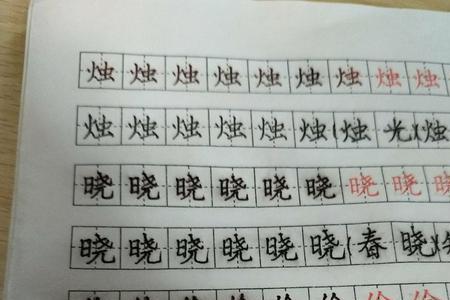 烛烛烛烛烛烛烛烛
烛烛烛烛烛烛(烛光)(烛
晓晓晓晓晓晓晓晓晓
晓晓晓晓晓晓(春晓)(